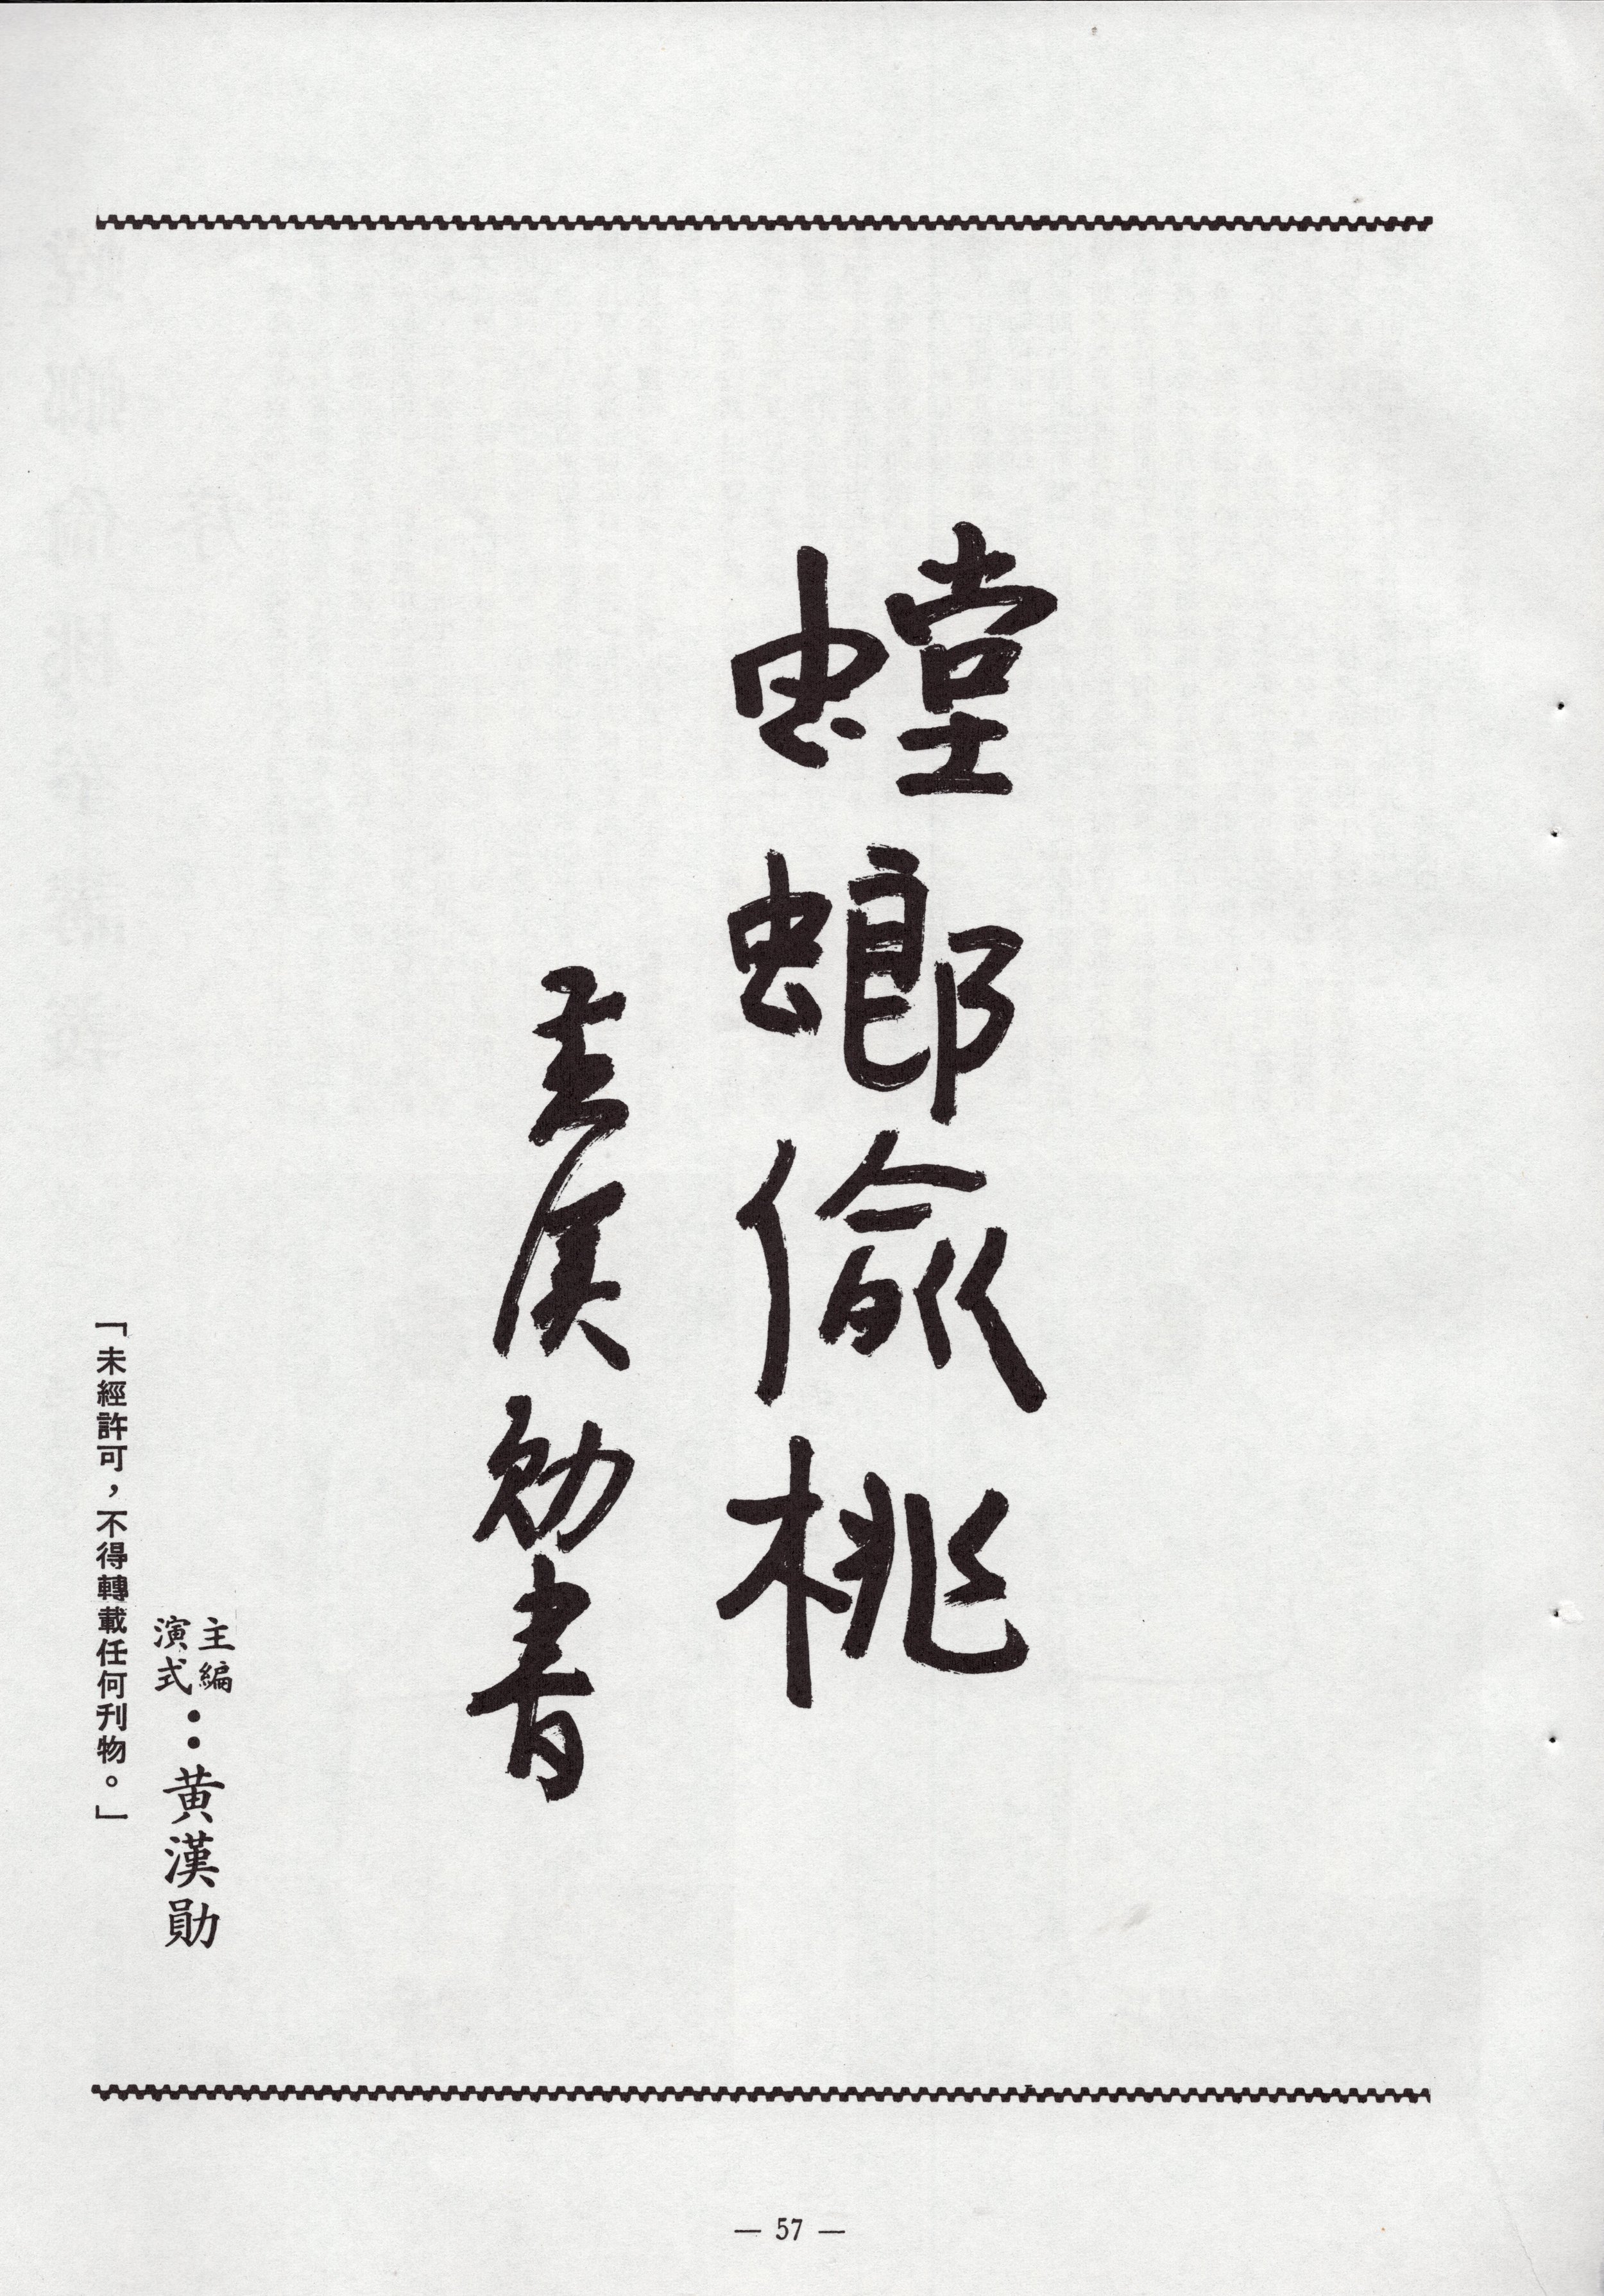 螳螂偷桃
黃漢勛書
主編
演式：黃漢勛
「未經許可，不得轉載任何刊物。」
— 57 —